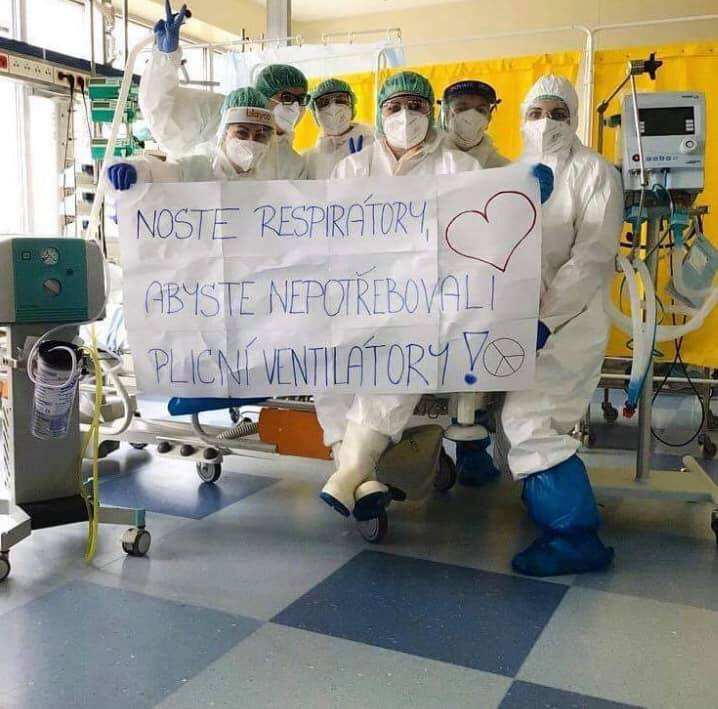 NOSTE RESPIRÁTORY,
ABYSTE NEPOTŘEBOVALI
PLICNÍ VENTILÁTORY!